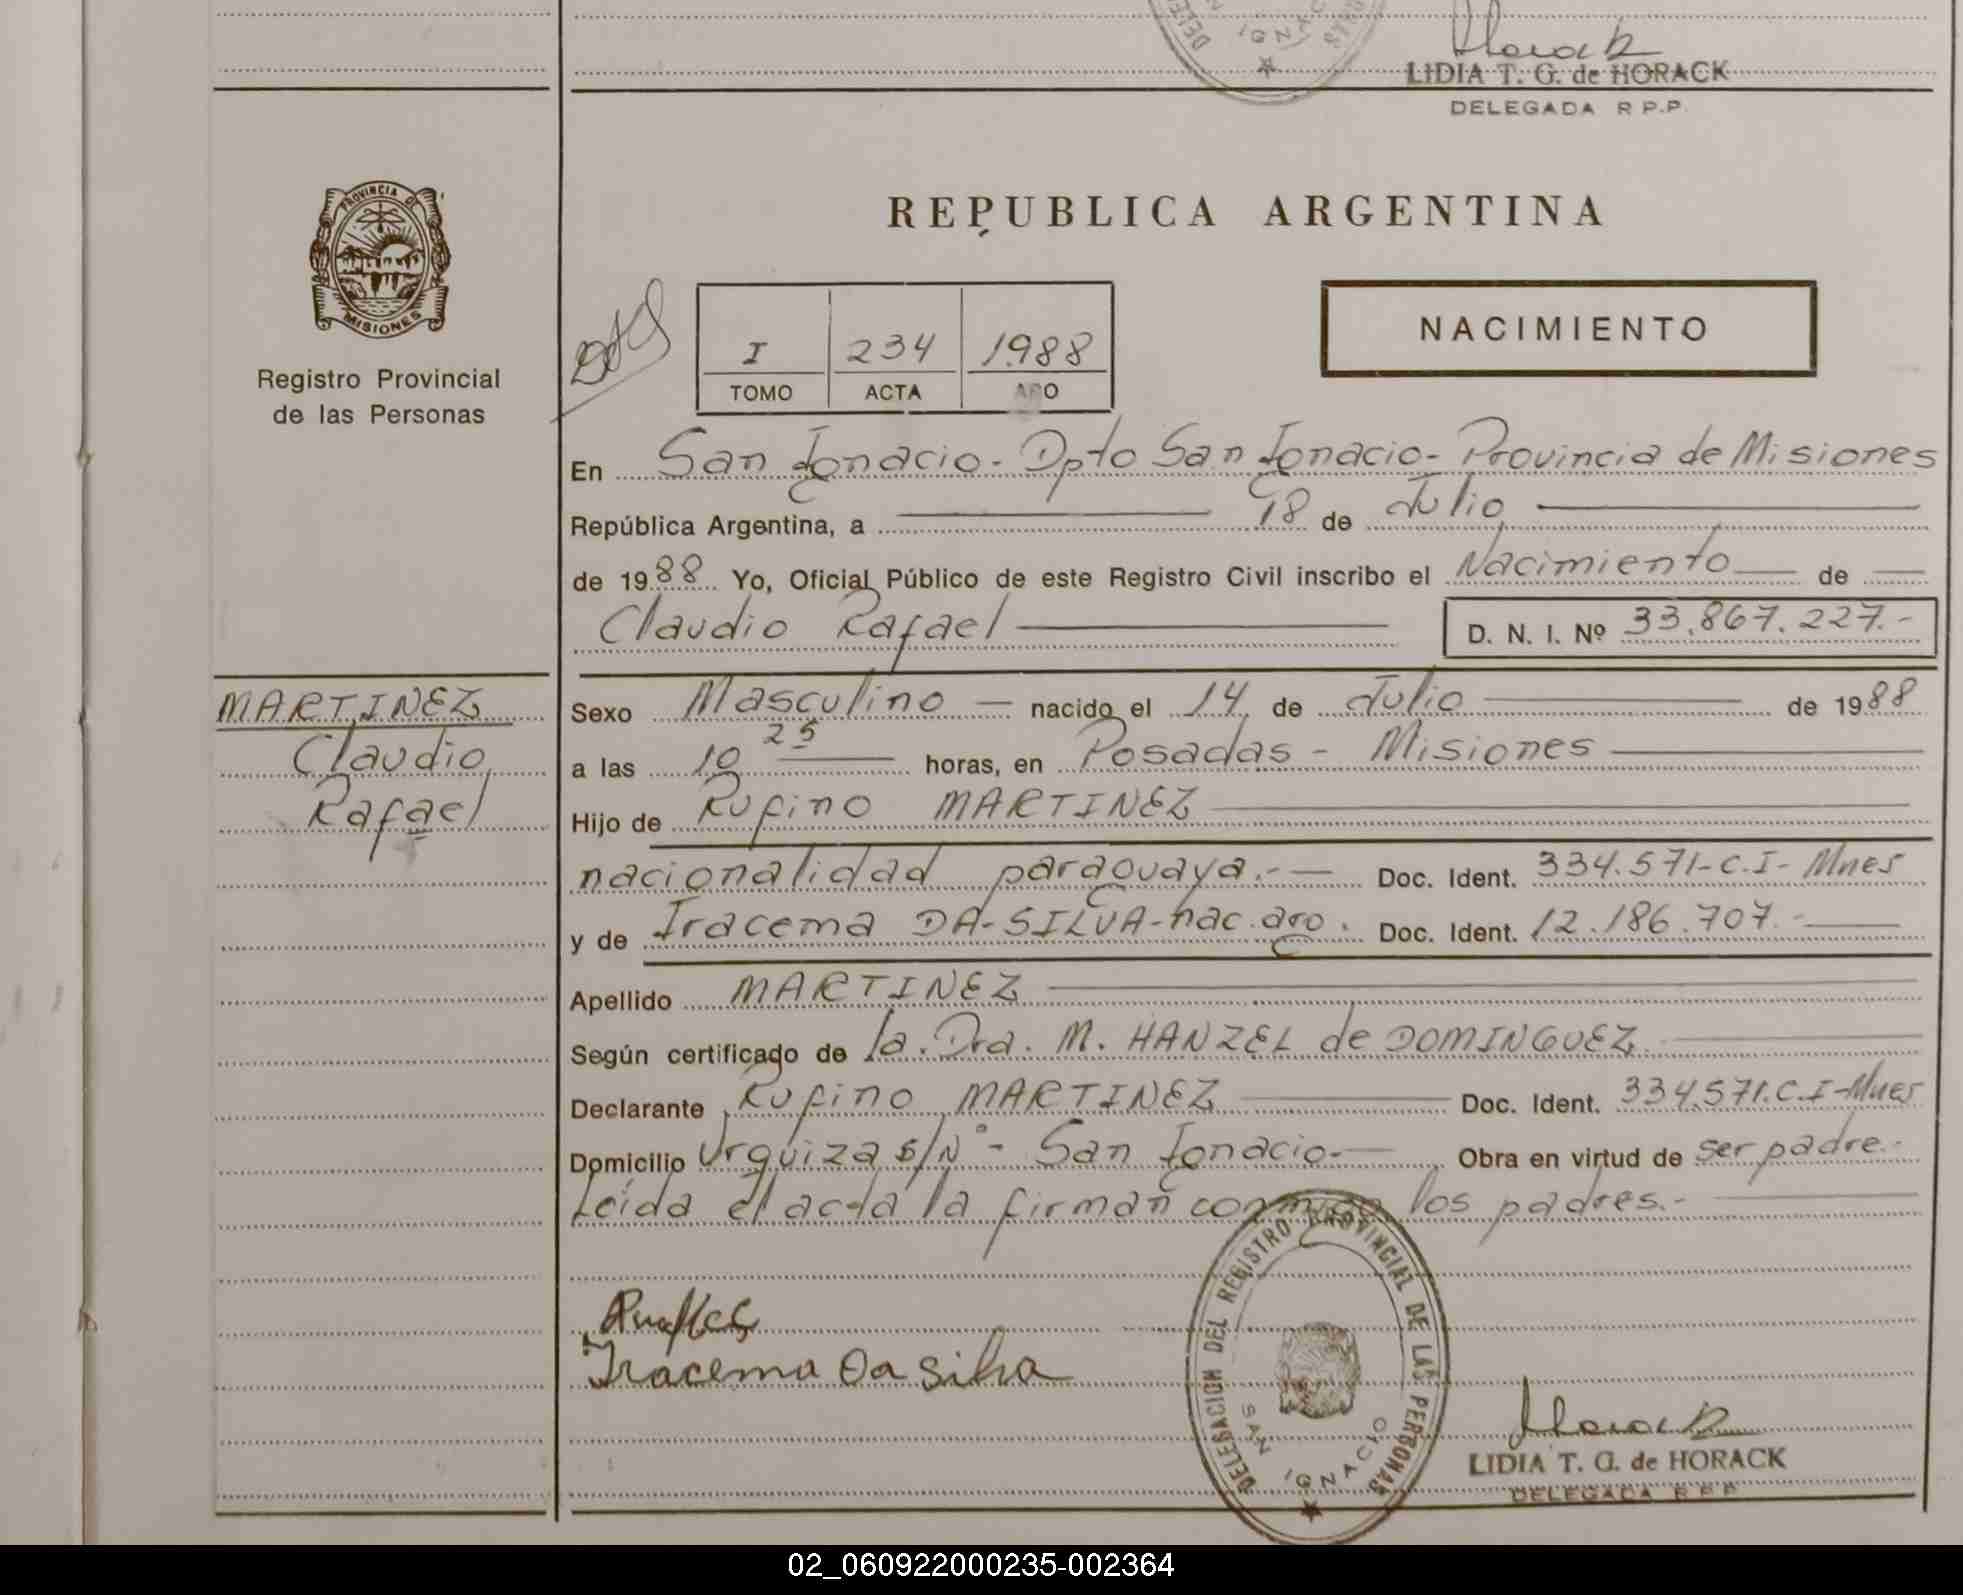 LIDIA T. G. de HORACK
DELEGADA R P.P.
PROVINCIA DE
MISIONES
Registro Provincial
de las Personas
REPUBLICA ARGENTINA
I 234 1988
TOMO ACTA AÑO
NACIMIENTO
En San Ignacio - Dpto San Ignacio - Provincia de Misiones
República Argentina, a 18 de Julio
de 1988 Yo, Oficial Público de este Registro Civil inscribo el Nacimiento de
Claudio Rafael D. N. I. Nº 33.867.227.-
MARTINEZ
Claudio
Rafael
Sexo Masculino nacido el 14 de Julio de 1988
a las 10 25 horas, en Posadas - Misiones
Hijo de Rufino MARTINEZ
nacionalidad paraguaya.- Doc. Ident. 334.571-C.I-Mnes
y de Iracema DA-SILVA-nac.arg. Doc. Ident. 12.186.707.-
Apellido MARTINEZ
Según certificado de la Dra. M. HANZEL de DOMINGUEZ
Declarante Rufino MARTINEZ Doc. Ident. 334.571.C.I-Mnes
Domicilio Urquiza s/Nº - San Ignacio.- Obra en virtud de ser padre.-
Leida el acta la firman conmigo los padres.-
Iracema Da Silva
DELEGACION DEL REGISTRO PROVINCIAL DE LAS PERSONAS
SAN IGNACIO
Horack
LIDIA T. G. de HORACK
DELEGADA R.P.P.
02_060922000235-002364